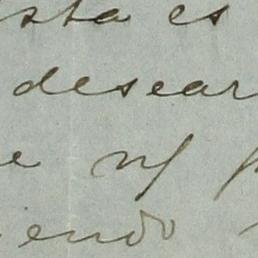 sta es
desear
e
endo